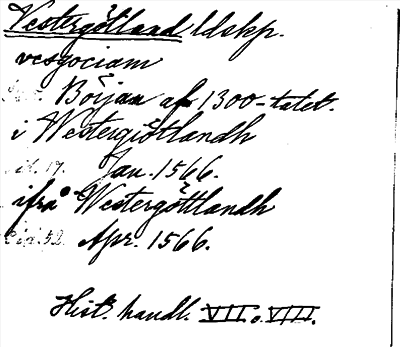 Vestergötland ldskp.
vesgociam
Början af 1300-talet.
i Westergiötlandh
sid. 17. Jan. 1566.
ifrå Westergöttlandh
sid. 52. Apr. 1566.
Hist. handl. VII o. VIII.